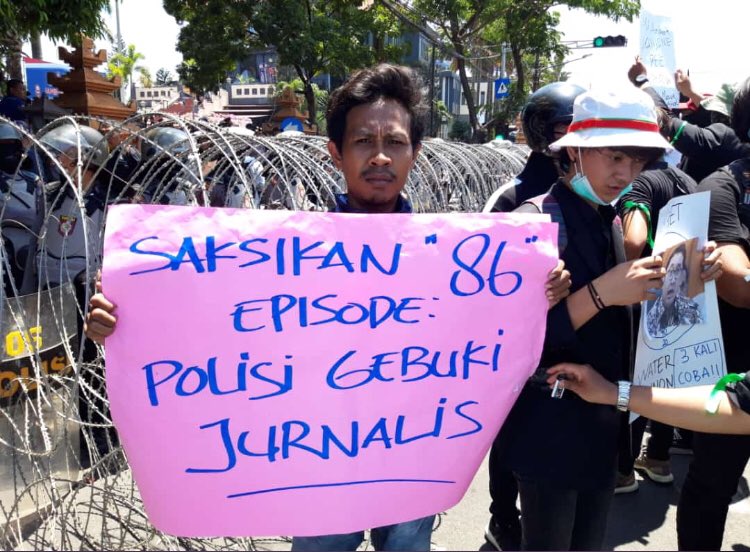 SAKSIKAN "86"
EPISODE:
POLISI GEBUKI
JURNALIS
WATER
3 KALI
COBA!!
05